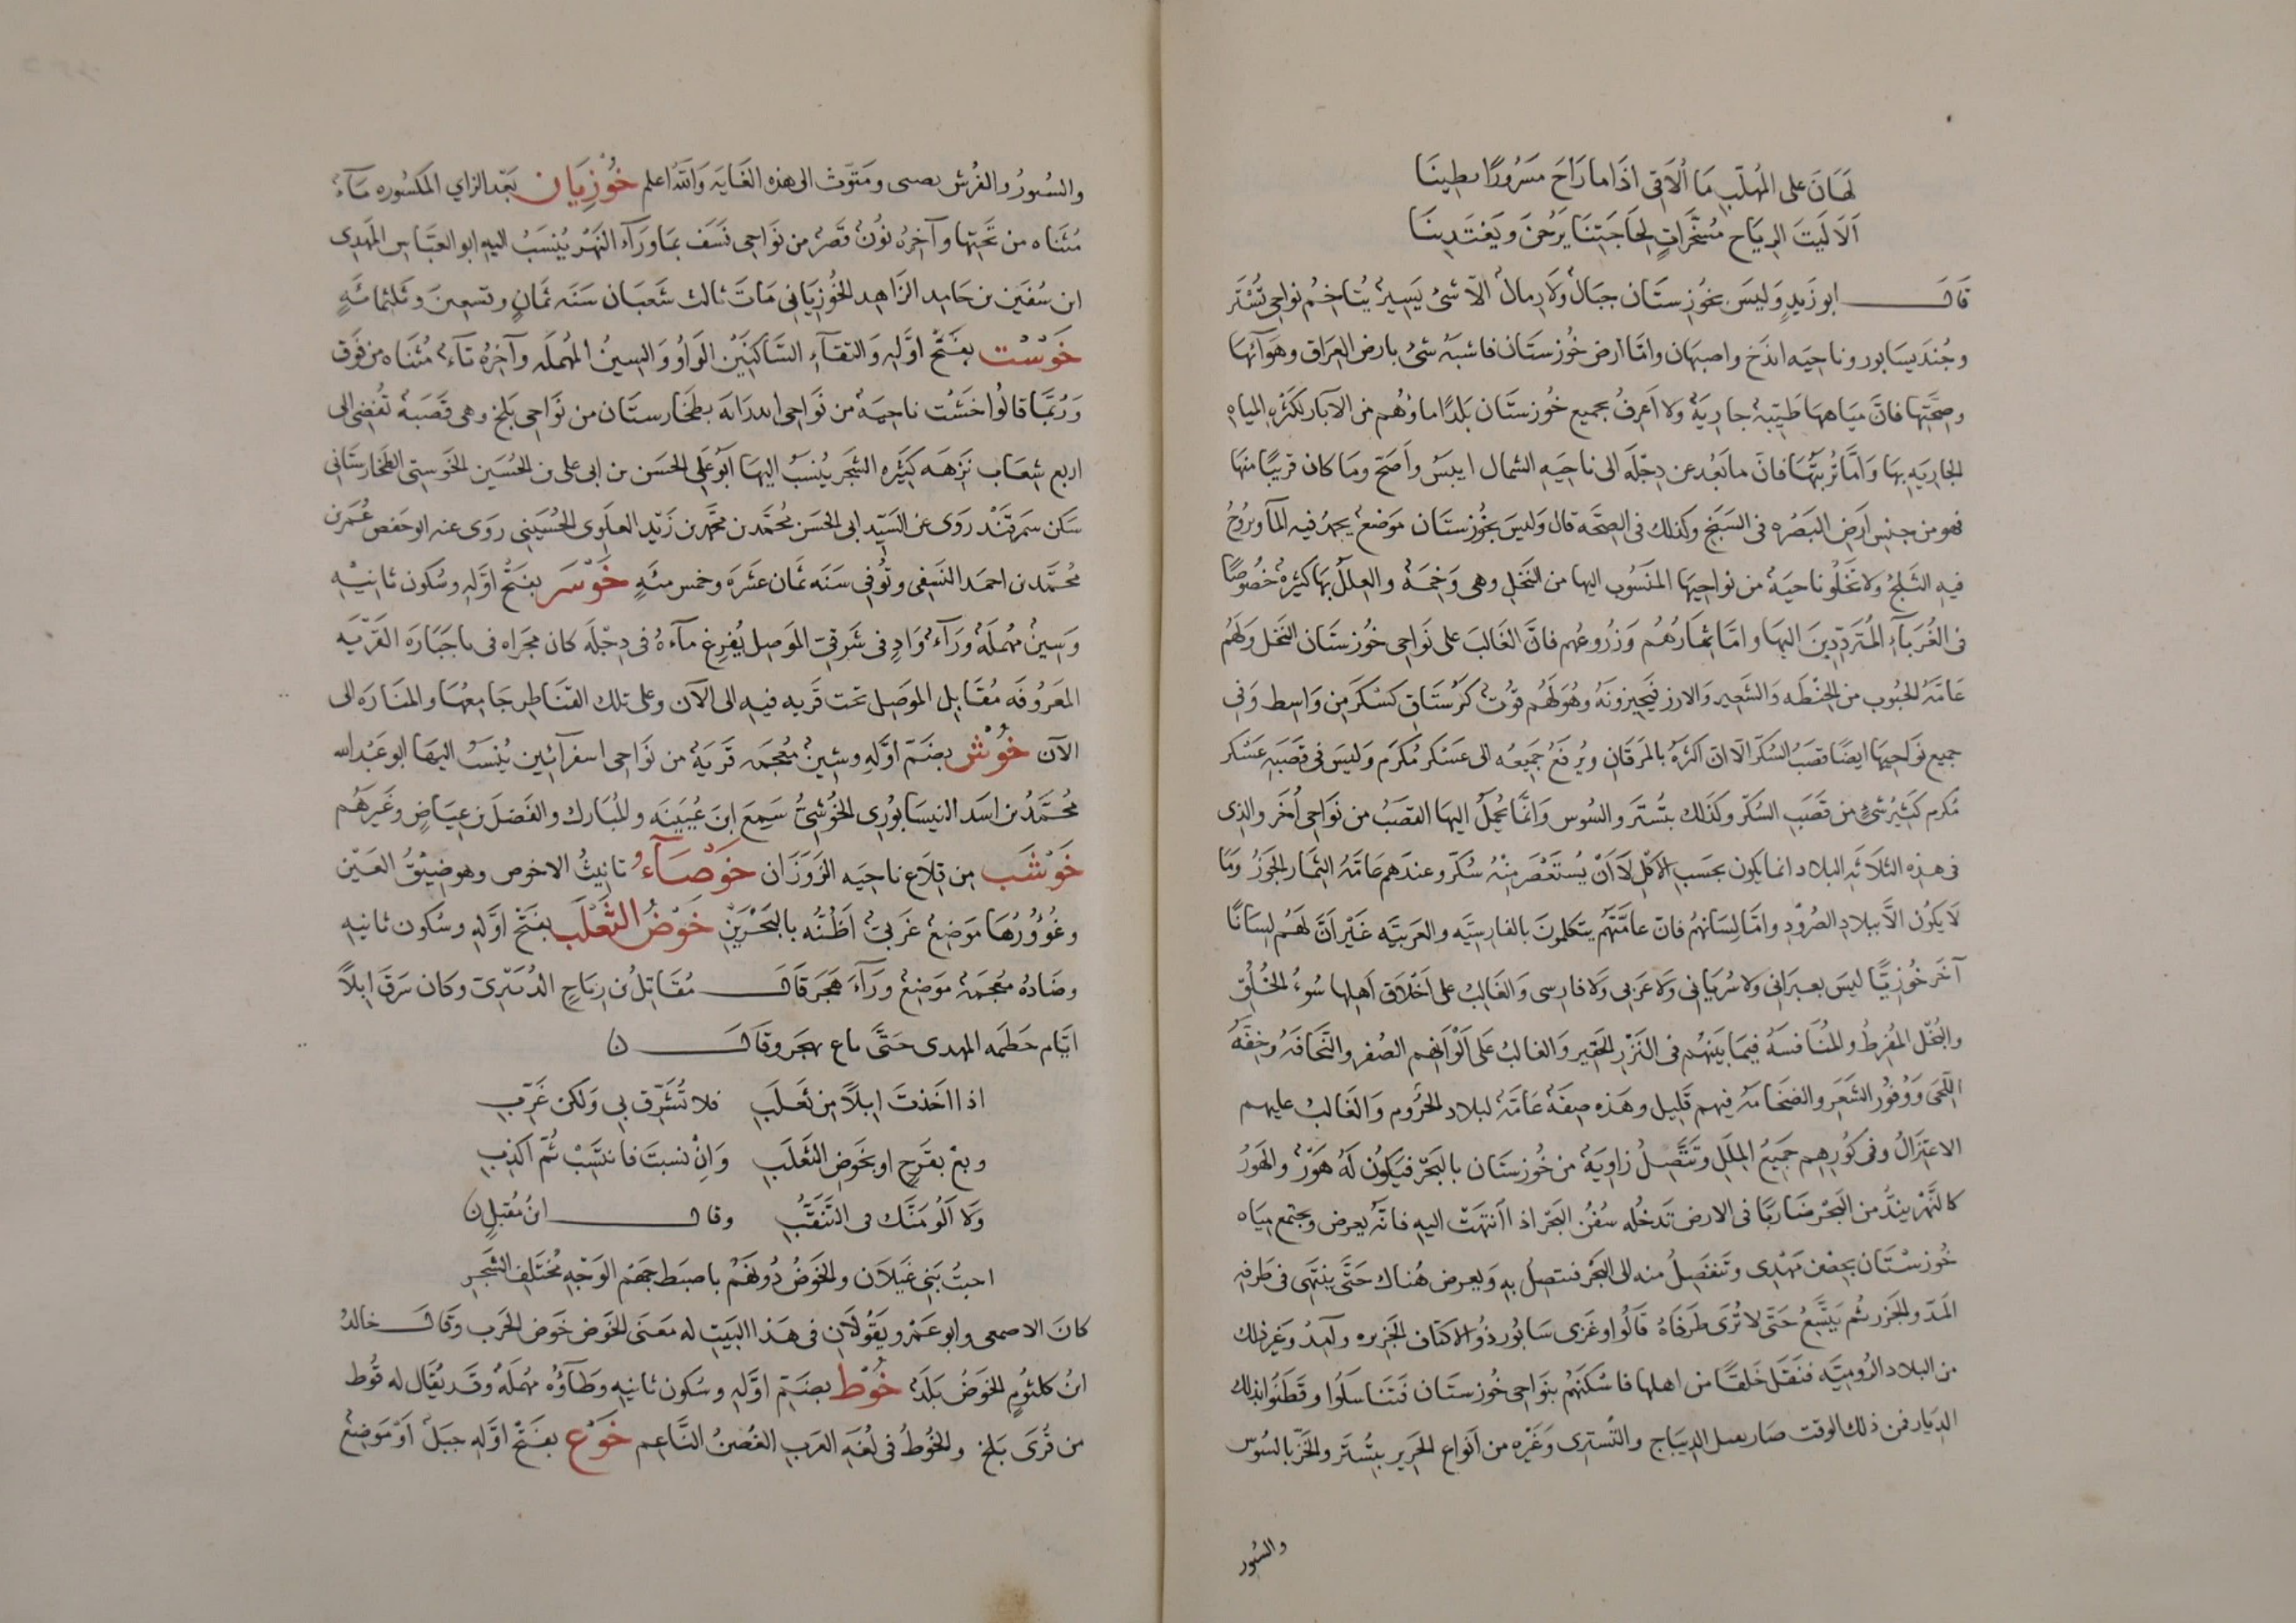 لهان على المهلب ما ألاقي اذا ما راح مسرورا بطينا
ألا ليت الرياح مسخرات لحاجتنا يرحن ويغتدينا
قال ابو زيد وليس بخوزستان جبال ولا رمال الا شئ يسير يتاخم نواحي تستر
وجنديسابور وناحيه ايذخ واصبهان واما ارض خوزستان فاشبه شئ بارض العراق وهوائها
وصحتها فان مياهها طيبة جارية ولا اعرف بجميع خوزستان بلدا ماؤهم من الآبار لكثرة المياه
الجارية بها واما تربتها فان ما بعد عن دجلة الى ناحيه الشمال ايبس واصح وما كان قريبا منها
فهو من جنس ارض البصره في السبخ وكذلك في الصحة قال وليس بخوزستان موضع يجمد فيه المآ ويروح
فيه الثلج ولا تخلو ناحية من نواحيها المنسوب اليها من النخل وهي وخمة والعلل بها كثيرة خصوصا
في الغربآء المترددين اليها واما ثمارهم وزروعهم فان الغالب على نواحي خوزستان النخل ولهم
عامة الحبوب من الحنطه والشعير والارز فيخبزونه وهو لهم قوت كرستاق كسكر من واسط وفي
جميع نواحيها ايضا قصب السكر الا ان اكثره بالمرقان ويرفع جميعه الى عسكر مكرم وليس في قصبه عسكر
مكرم كثير شئ من قصب السكر وكذلك بتستر والسوس وانما يحمل اليها القصب من نواحي أخر والذي
في هذه الثلاثه البلاد انما يكون بحسب الاكل لا أن يستعصر منه سكر وعندهم عامة الثمار الجوز وما
لا يكون الا ببلاد الصرود واما لسانهم فان عامتهم يتكلمون بالفارسيه والعربيه غير أن لهم لسانا
آخر خوزيا ليس بعبراني ولا سرياني ولا عربي ولا فارسي والغالب على اخلاق اهلها سوء الخلق
والبخل المفرط والمنافسة فيما بينهم في النزر الحقير والغالب على الوانهم الصفر والنحافة وخفة
اللحى ووفور الشعر والضخامة فيهم قليل وهذه صفة عامة لبلاد الجروم والغالب عليهم
الاعتزال وفي كورهم جميع الملل وتتصل زاوية من خوزستان بالبحر فيكون له هور والهور
كالنهر يند من البحر ضاربا في الارض تدخله سفن البحر اذا انتهت اليه فانه يعرض ويجتمع مياه
خوزستان بحصن مهدي وتنفصل منه الى البحر فتتصل به ويعرض هناك حتى ينتهى في طرفه
المد والجزر ثم يتسع حتى لا ترى طرفاه قالوا وغزى سابور ذو الاكتاف الجزيره وآمد وغير ذلك
من البلاد الروميه فنقل خلقا من اهلها فاسكنهم بنواحي خوزستان فتناسلوا وقطنوا بذلك
الديار فمن ذلك الوقت صار يعمل الديباج والتستري وغيره من انواع الحرير بتستر والخز بالسوس
والسور
والستور والفرش بصى ومتوث الى هذه الغايه والله اعلم خوزيان بعد الزاي المكسوره ياء
مثناه من تحتها وآخره نون قصر من نواحي نسف بما ورآء النهر ينسب اليه ابو العباس المهدي
ابن سفين بن حامد الزاهد الخوزياني مات ثالث شعبان سنه ثمان وتسعين وثلثمائة
خوست بفتح اوله والتقآء الساكنين الواو والسين المهمله وآخره تآء مثناه من فوق
وربما قالوا خشت ناحية من نواحي اندرابه بطخارستان من نواحي بلخ وهي قصبة تفضي الى
اربع شعاب نزهه كثيره الشجر ينسب اليها ابو علي الحسن بن ابي علي بن الحسين الخوستي الطخارستاني
سكن سمرقند روى عن السيد ابي الحسن محمد بن محمد بن زيد العلوي الحسيني روى عنه ابو حفص عمر بن
محمد بن احمد النسفي وتوفي سنه ثمان عشره وخمس مئة خوسر بفتح اوله وسكون ثانيه
وسين مهملة ورآء واد في شرقي الموصل يفرغ مآءه في دجله كان مجراه في باجباره القريه
المعروفه مقابل الموصل تحت قريه فيه الى الآن وعلى تلك القناطر جامعها والمناره الى
الآن خوش بضم اوله وشين معجمه قرية من نواحي اسفرآئين ينسب اليها ابو عبد الله
محمد بن اسد النيسابوري الخوشي سمع ابن عيينه والمبارك والفضل بن عياض وغيرهم
خوشب من قلاع ناحيه الزوزان خوصآء تانيث الاخوص وهو ضيق العين
وغؤورها موضع غربي اظنه بالبحرين خوض الثعلب بفتح اوله وسكون ثانيه
وضاده معجمة موضع ورآء هجر قال مقاتل بن رياح الدبيري وكان سرق ابلا
ايام حطمه المهدي حتى باع بهجر وقال ن
اذا اخذت ابلا من تعلب فلا تشرق بي ولكن غرب
وبع بقرح او بخوض الثعلب وان نسبت فانتسب ثم اكذب
ولا ألومنك في التنقب وقال ابن مقبل ن
احبت بني غيلان والخوض دونهم باضبط جهم الوجه مختلف الشجر
كان الاصمعي وابو عمرو يقولان في هذا البيت له معنى الخوض خوض الحرب وقال خالد
ابن كلثوم الخوض بلد خوط بضم اوله وسكون ثانيه وطآؤه مهملة وقد يقال له قوط
من قرى بلخ والخوط في لغه العرب الغصن الناعم خوع بفتح اوله جبل او موضع